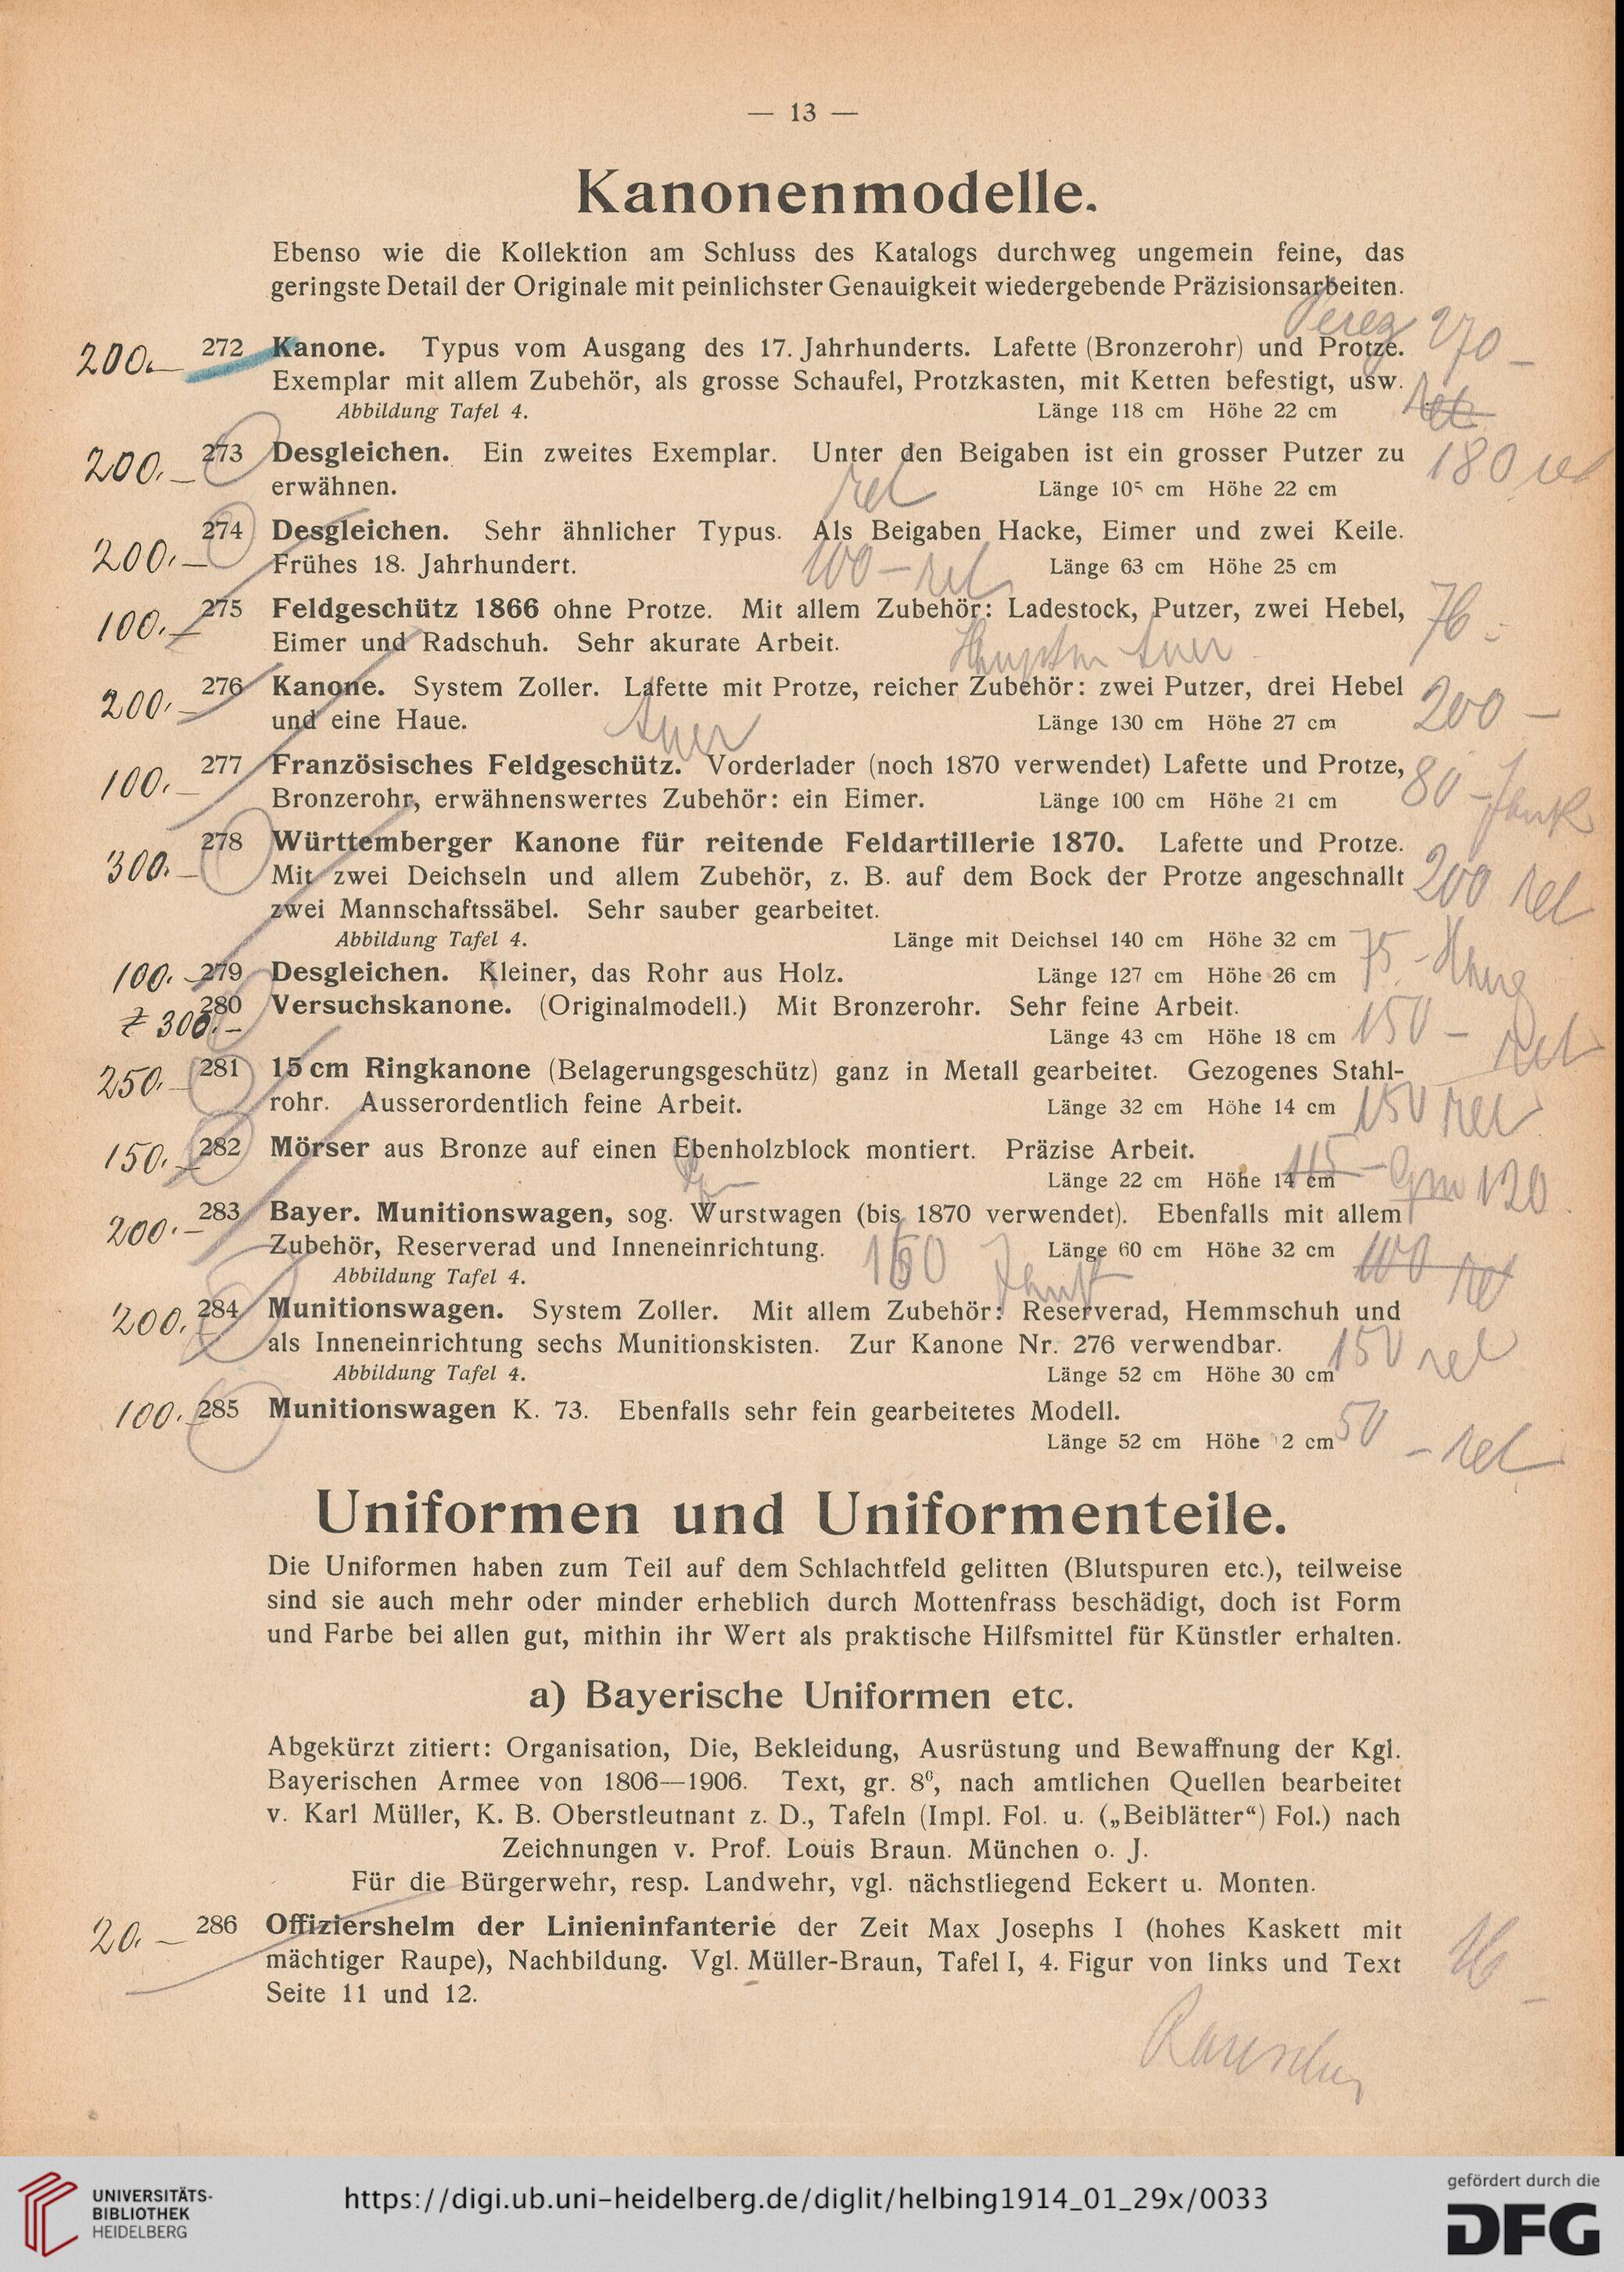 — 13 —
Kanonenmodelle.
Ebenso wie die Kollektion am Schluss des Katalogs durchweg ungemein feine, das
geringste Detail der Originale mit peinlichster Genauigkeit wiedergebende Präzisionsarbeiten.
200.— 272 Kanone. Typus vom Ausgang des 17. Jahrhunderts. Lafette (Bronzerohr) und Protze. 270 —
Exemplar mit allem Zubehör, als grosse Schaufel, Protzkasten, mit Ketten befestigt, usw.
Abbildung Tafel 4. Länge 118 cm Höhe 22 cm
200.— 273 Desgleichen. Ein zweites Exemplar. Unter den Beigaben ist ein grosser Putzer zu 180 ret
erwähnen. ret Länge 105 cm Höhe 22 cm
200.— 274 Desgleichen. Sehr ähnlicher Typus. Als Beigaben Hacke, Eimer und zwei Keile.
Frühes 18. Jahrhundert. 100 — ret Länge 63 cm Höhe 25 cm
100.— 275 Feldgeschütz 1866 ohne Protze. Mit allem Zubehör: Ladestock, Putzer, zwei Hebel, 76.-
Eimer und Radschuh. Sehr akurate Arbeit.
200.— 276 Kanone. System Zoller. Lafette mit Protze, reicher Zubehör: zwei Putzer, drei Hebel 200 —
und eine Haue. Länge 130 cm Höhe 27 cm
100.— 277 Französisches Feldgeschütz. Vorderlader (noch 1870 verwendet) Lafette und Protze, 80 -
Bronzerohr, erwähnenswertes Zubehör: ein Eimer. Länge 100 cm Höhe 21 cm
300.— 278 Württemberger Kanone für reitende Feldartillerie 1870. Lafette und Protze.
Mit zwei Deichseln und allem Zubehör, z. B. auf dem Bock der Protze angeschnallt 200 ret
zwei Mannschaftssäbel. Sehr sauber gearbeitet.
Abbildung Tafel 4. Länge mit Deichsel 140 cm Höhe 32 cm
100.— 279 Desgleichen. Kleiner, das Rohr aus Holz. Länge 127 cm Höhe 26 cm 75 -
300.- 280 Versuchskanone. (Originalmodell.) Mit Bronzerohr. Sehr feine Arbeit.
Länge 43 cm Höhe 18 cm 150 — ret
250.— 281 15 cm Ringkanone (Belagerungsgeschütz) ganz in Metall gearbeitet. Gezogenes Stahl-
rohr. Ausserordentlich feine Arbeit. Länge 32 cm Höhe 14 cm 150 ret
150.— 282 Mörser aus Bronze auf einen Ebenholzblock montiert. Präzise Arbeit.
Länge 22 cm Höhe 14 cm 115 — 120
200.— 283 Bayer. Munitionswagen, sog. Wurstwagen (bis 1870 verwendet). Ebenfalls mit allem
Zubehör, Reserverad und Inneneinrichtung. Länge 60 cm Höhe 32 cm 100 ret
Abbildung Tafel 4.
200. 284 Munitionswagen. System Zoller. Mit allem Zubehör: Reserverad, Hemmschuh und
als Inneneinrichtung sechs Munitionskisten. Zur Kanone Nr. 276 verwendbar. 150 ret
Abbildung Tafel 4. Länge 52 cm Höhe 30 cm
100. 285 Munitionswagen K. 73. Ebenfalls sehr fein gearbeitetes Modell.
Länge 52 cm Höhe 2 cm 50 — ret
Uniformen und Uniformenteile.
Die Uniformen haben zum Teil auf dem Schlachtfeld gelitten (Blutspuren etc.), teilweise
sind sie auch mehr oder minder erheblich durch Mottenfrass beschädigt, doch ist Form
und Farbe bei allen gut, mithin ihr Wert als praktische Hilfsmittel für Künstler erhalten.
a) Bayerische Uniformen etc.
Abgekürzt zitiert: Organisation, Die, Bekleidung, Ausrüstung und Bewaffnung der Kgl.
Bayerischen Armee von 1806—1906. Text, gr. 8⁰, nach amtlichen Quellen bearbeitet
v. Karl Müller, K. B. Oberstleutnant z. D., Tafeln (Impl. Fol. u. („Beiblätter“) Fol.) nach
Zeichnungen v. Prof. Louis Braun. München o. J.
Für die Bürgerwehr, resp. Landwehr, vgl. nächstliegend Eckert u. Monten.
20.— 286 Offiziershelm der Linieninfanterie der Zeit Max Josephs I (hohes Kaskett mit
mächtiger Raupe), Nachbildung. Vgl. Müller-Braun, Tafel I, 4. Figur von links und Text 16 —
Seite 11 und 12.
UNIVERSITÄTS-
BIBLIOTHEK
HEIDELBERG
https://digi.ub.uni-heidelberg.de/diglit/helbing1914_01_29x/0033
gefördert durch die
DFG